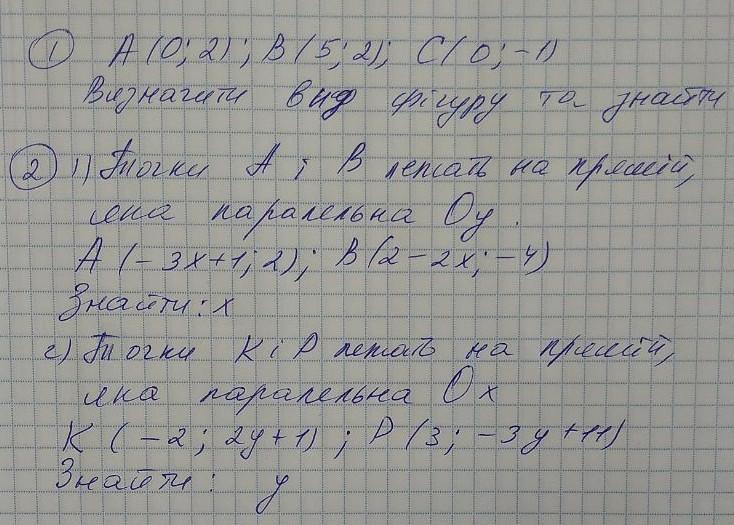 1 A (0; 2); B (5; 2); C (0; -1)
Визначити вид фігуру та знайти
2 1) Точки A і B лежать на прямій,
яка паралельна Oy.
A (-3x+1; 2); B (2-2x; -4)
Знайти: x
2) Точки K і P лежать на прямій,
яка паралельна Ox
K (-2; 2y+1); P (3; -3y+11)
Знайти: y